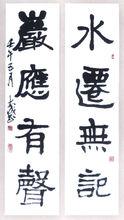 水遷無記
嚴應有聲
壬午三月